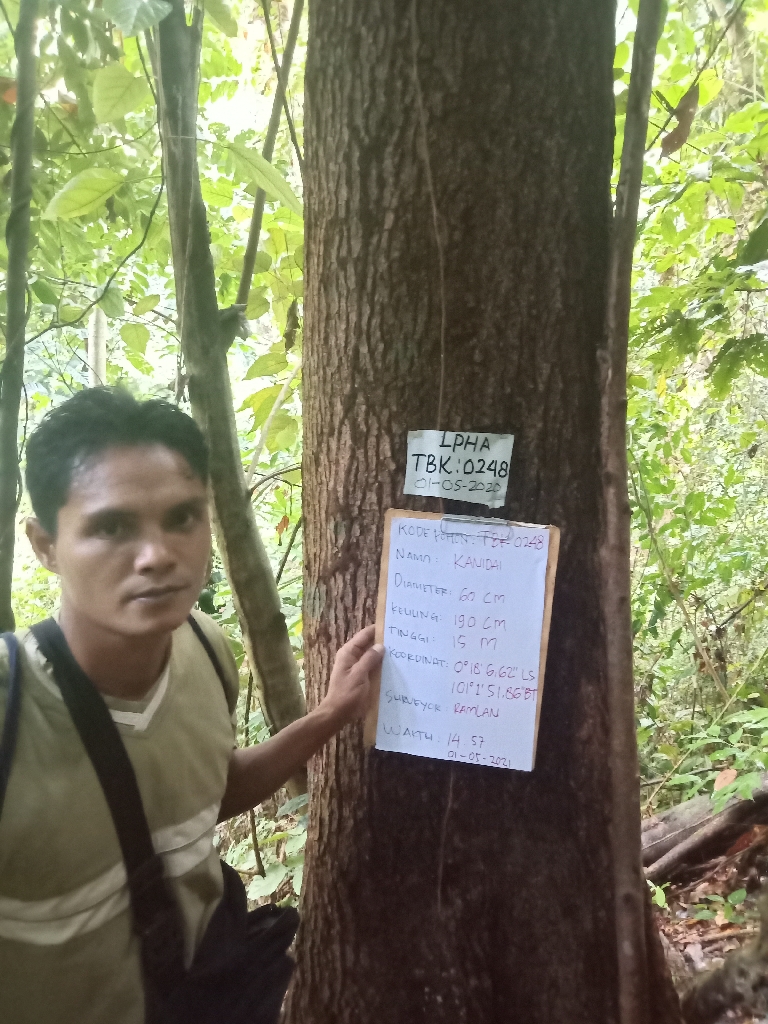 LPHA
TBK:0248
01-05-2020
KODE POHON: TBK 0248
NAMA: KANIDAI
DIAMETER: 60 CM
KELILING: 190 CM
TINGGI: 15 M
KOORDINAT: 0°18'6,62" LS
101°1'51,86"BT
SURVEYOR: RAMLAN
WAKTU: 14.57
01-05-2021